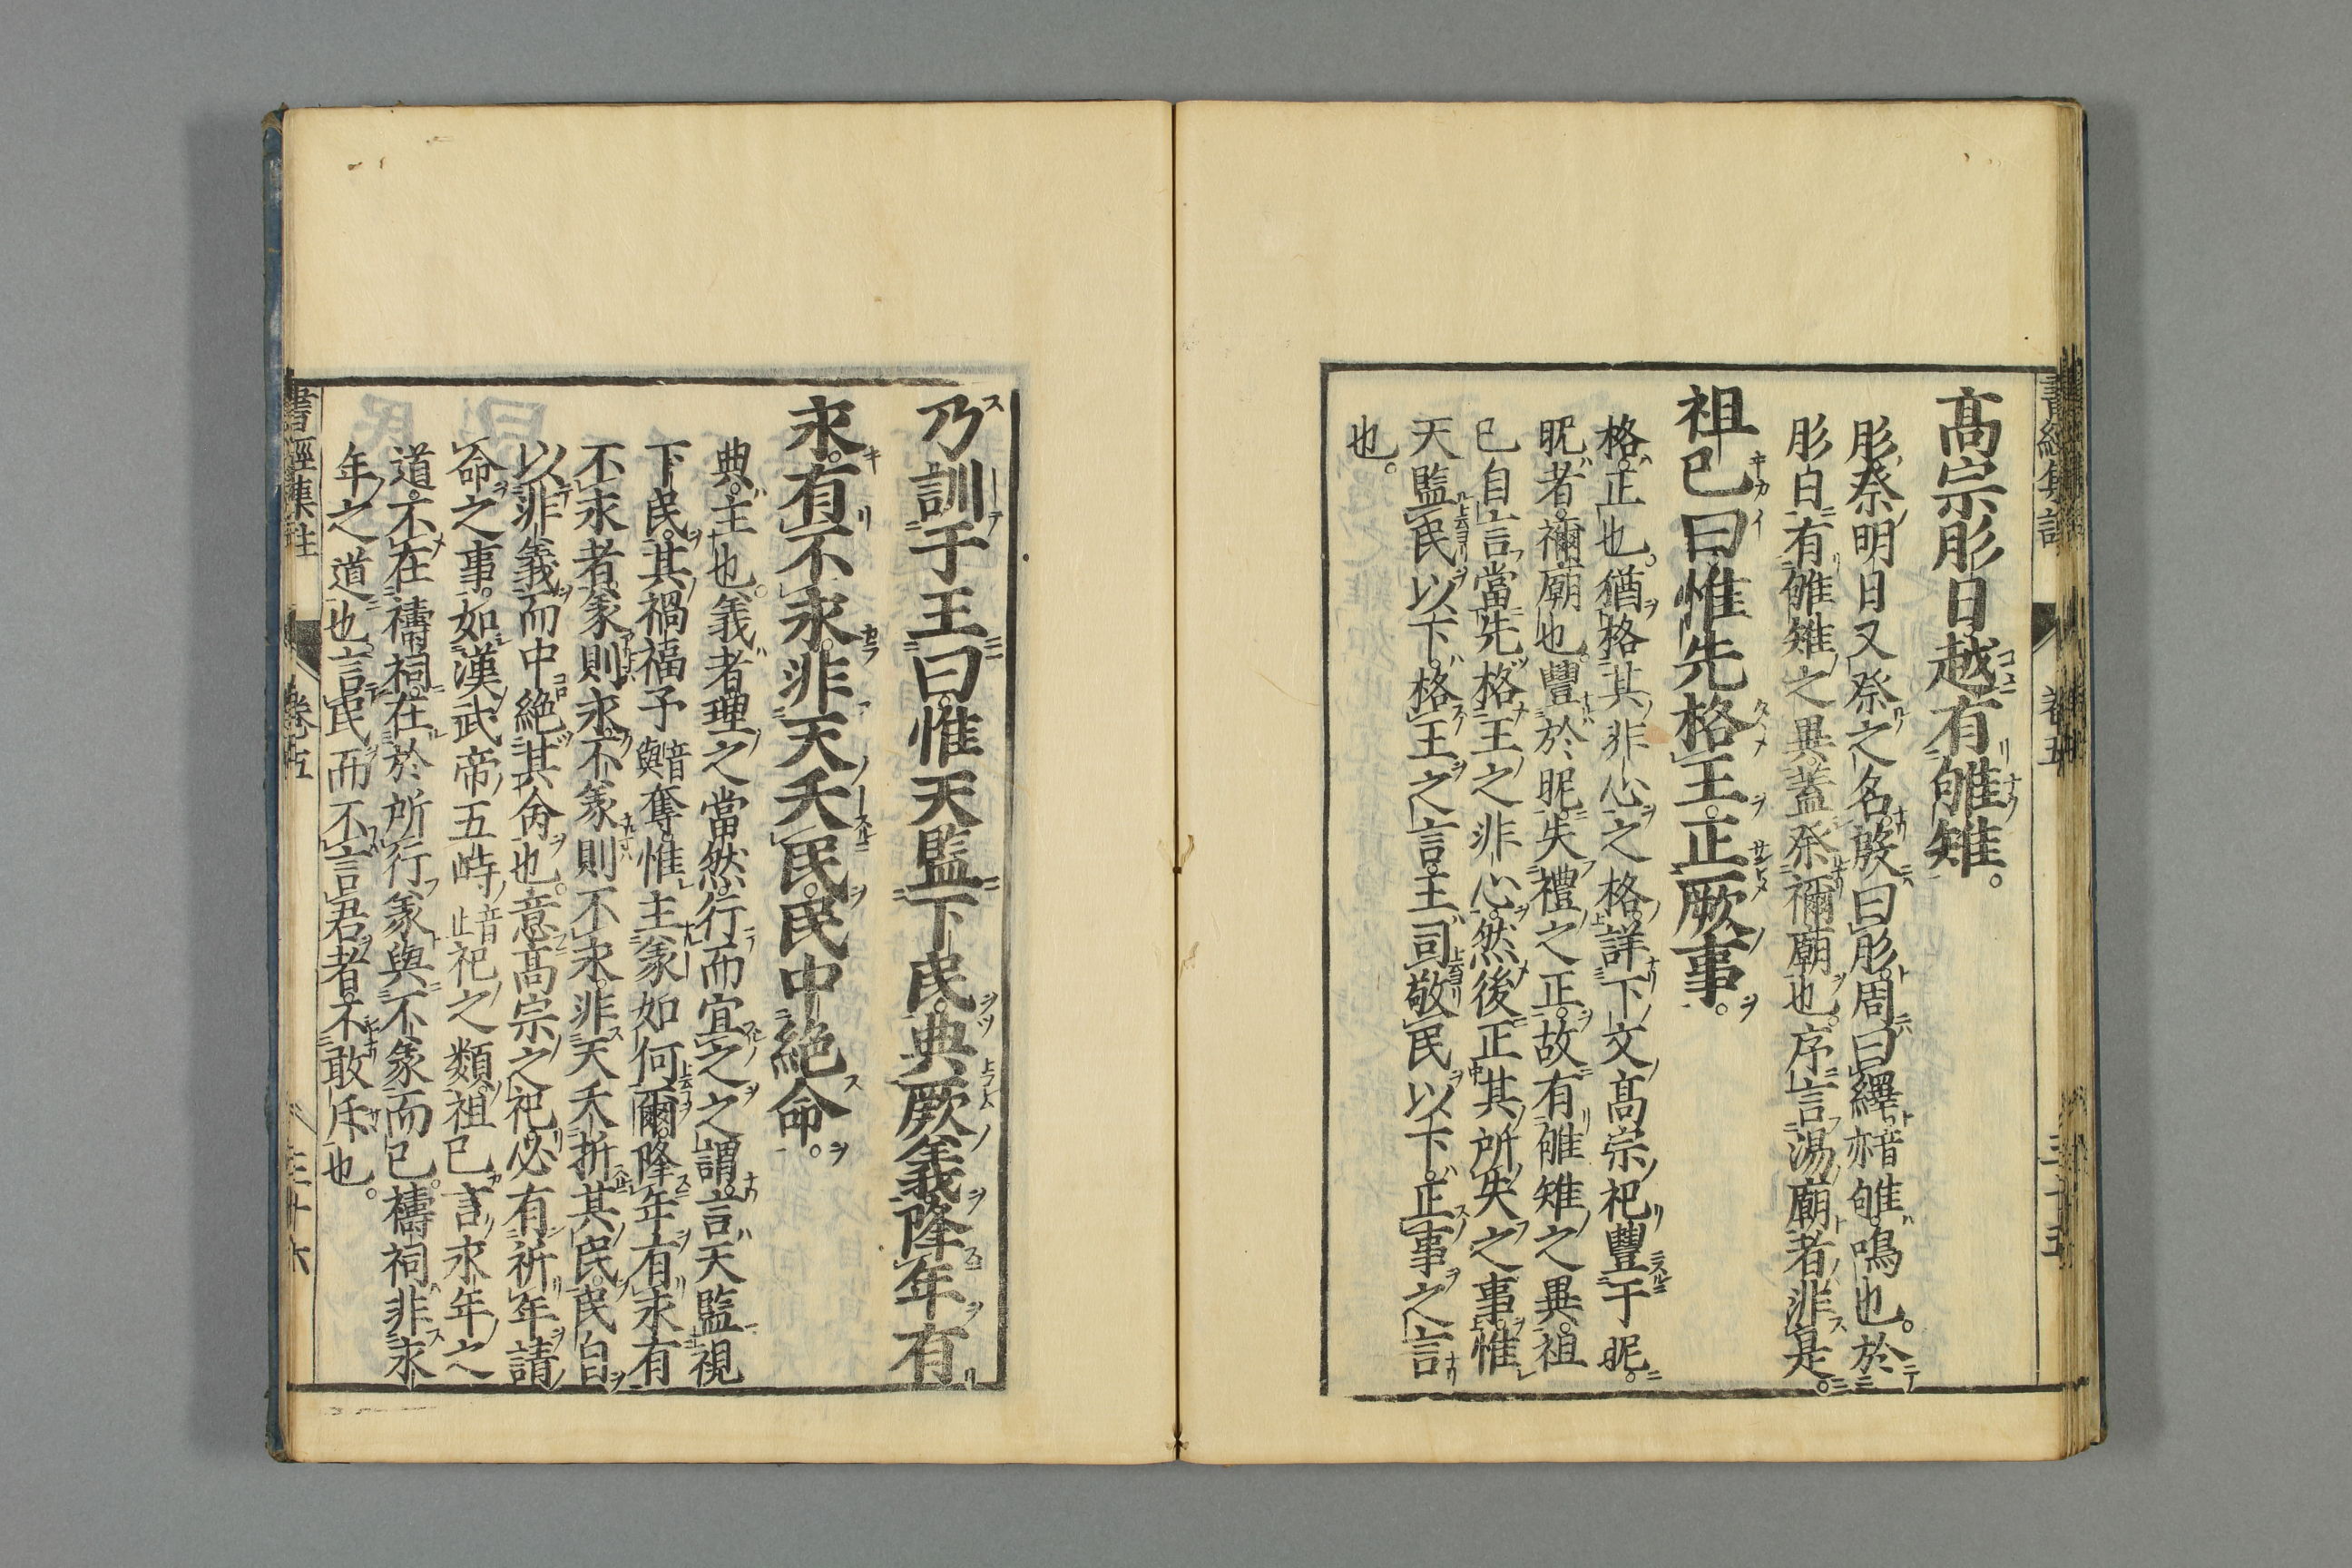 書經集註 卷五 三十五
高宗肜日越有雊雉。
肜祭明日又祭之名殷曰肜周曰繹音亦雊鳴也。於
肜日有雊雉之異蓋祭禰廟也序言湯廟者非是。
祖已曰惟先格王。正厥事。
格正也。猶格其非心之格詳下文高宗祀豐于昵。
昵者禰廟也豐於昵失禮之正故有雊雉之異祖
已自言當先格王之非心然後正其所失之事惟
天監民以下。格王之言王司敬民以下。正事之言
也。
乃訓于王曰惟天監下民典厥義降年有
永。有不永。非天夭民民中絶命。
典主也。義者理之當然行而宜之之謂言天監視
下民。其禍福予音與奪惟主義如何爾降年有永有
不永者。義則永。不義則不永。非天夭折其民民自
以非義而中絶其命也。意高宗之祀必有祈年請
命之事。如漢武帝五畤音止祀之類祖已言永年之
道不在禱祠在於所行義與不義而已禱祠非永
年之道也。言民而不言君者。不敢斥也。
書經集註 卷五 三十六